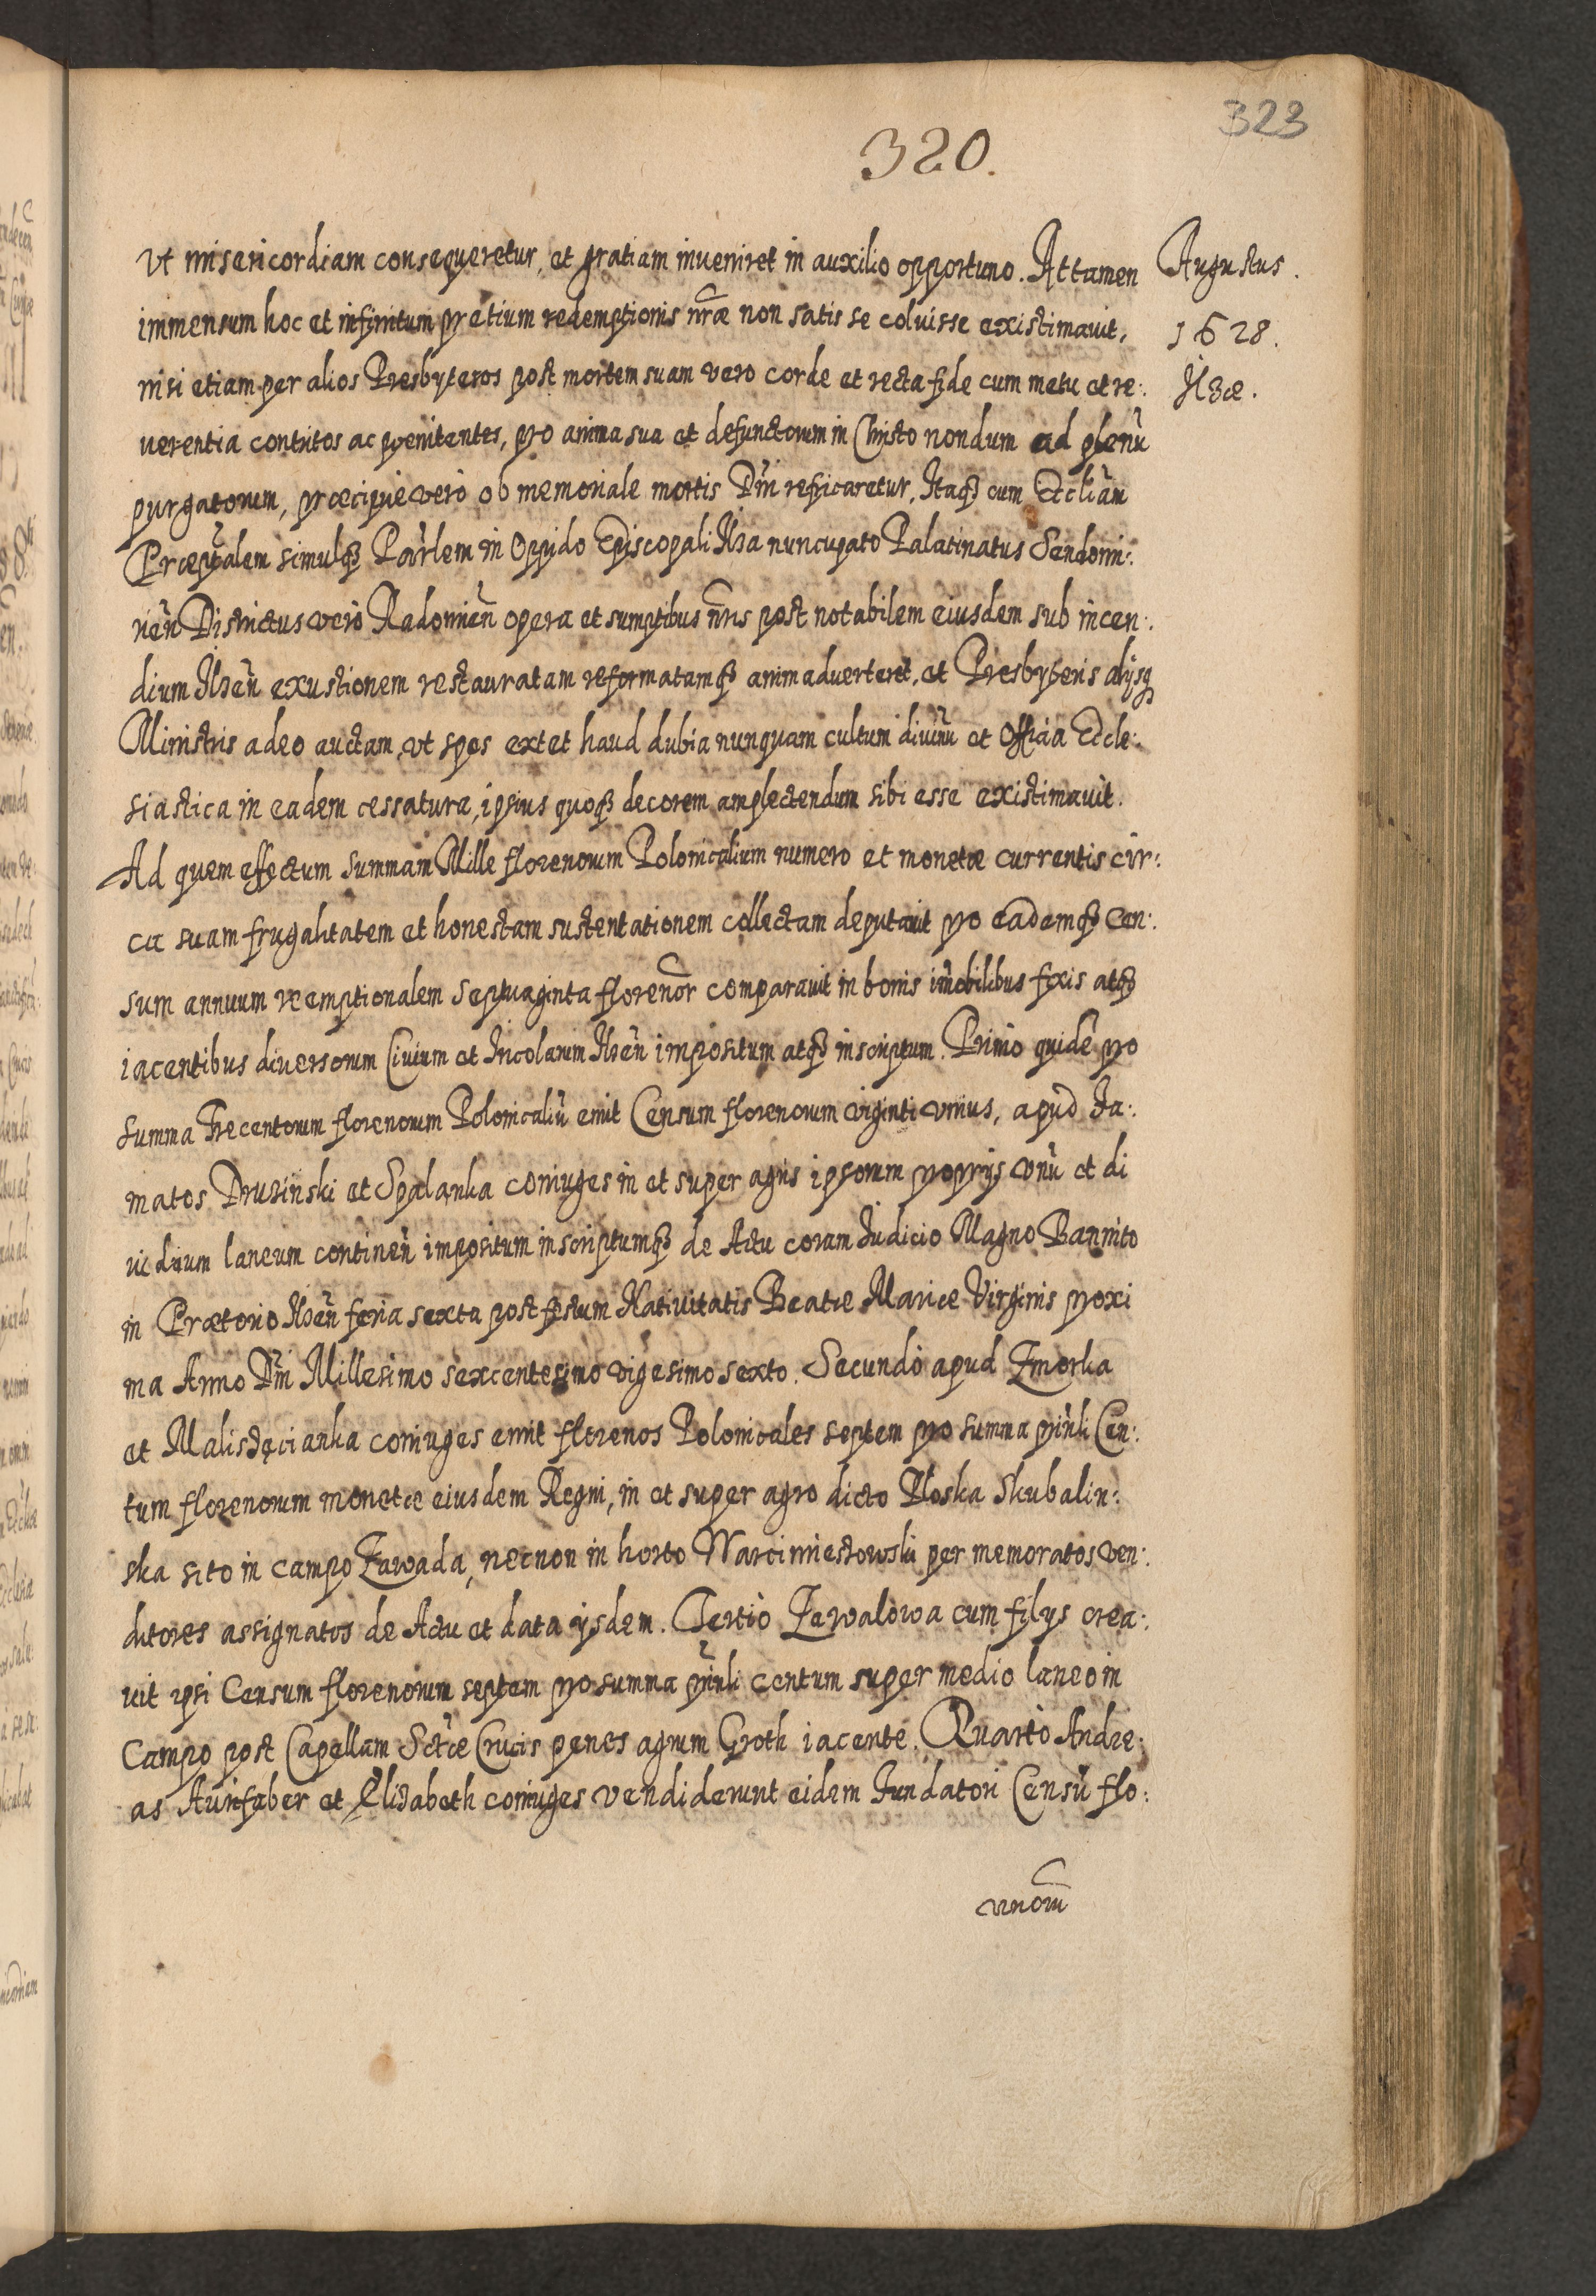 323
320.
Vt misericordiam consequeretur, et gratiam inveniret in auxilio opportuno. Attamen
Augustus.
immensum hoc et infinitum pretium redemptionis nr̃æ non satis se coluisse existimavit,
1628.
nisi etiam per alios Presbyteros post mortem suam vero corde et recta fide cum metu et re:
Ilzæ.
uerentia contritos ac pœnitentes, pro anima sua et defunctorum in Christo nondum ad plenũ
purgatorum, præcipuè verò ob memoriale mortis Dñi refricaretur. Itaq; cum Eccliam̃
Præpt̃alem simulq; Pãrlem in Oppido Episcopali Ilza nuncupato Palatinatus Sendomi:
rieñ Districtus verò Radomieñ opera et sumptibus nr̃is post notabilem eiusdem sub incen:
dium Ilzeñ exustionem restauratam reformatamq; animaduerteret, et Presbyteris alijsq;
Ministris adeo auctam, vt spes extet haud dubia nunquam cultum diuinũ et Officia Eccle:
siastica in eadem cessatura, ipsius quoq; decorem amplectendum sibi esse existimauit.
Ad quem effectum summam Mille florenorum Polonicalium numero et monetæ currentis cir:
ca suam frugalitatem et honestam sustentationem collectam deputauit pro eademq; Cen:
sum annuum reemptionalem Septuaginta florenor̃ comparauit in bonis im̃obilibus fixis atq;
iacentibus diuersorum Ciuium et Incolarum Ilzeñ impositum atq; inscriptum. Primò quidẽ pro
summa Trecentorum florenorum Polonicaliũ emit Censum florenorum viginti vnius, apud Ja:
matos Druzinski et Spalanka coniuges in et super agris ipsorum proprijs vnũ et di
uidium laneum contineñ impositum inscriptumq; de Actu coram Iudicio Magno Bannito
in Prætorio Ilzeñ feria sexta post festum Natiuitatis Beatæ Mariæ Virginis proxi
ma Anno Dñi Millesimo sexcentesimo vigesimo sexto. Secundò apud Zmorka
et coniuges emit florenos Polonicales septem pro summa prin̄li Cen:
tum florenorum monetæ eiusdem Regni, in et super agro dicto Płoska Skubalin:
ska sito in campo Zawada, necnon in horto per memoratos ven:
ditores assignatos de Actu et data ijsdem. Tertiò Zawalowa cum filijs crea:
uit ipsi Censum florenorum septem pro summa prin̄li centum super medio laneo in
Campo post Capellam Sctæ̃ Crucis penes agrum Groth iacente. Quartò Andre:
as Aurifaber et Elizabeth coniuges vendiderunt eidem Fundatori Censũ flo: